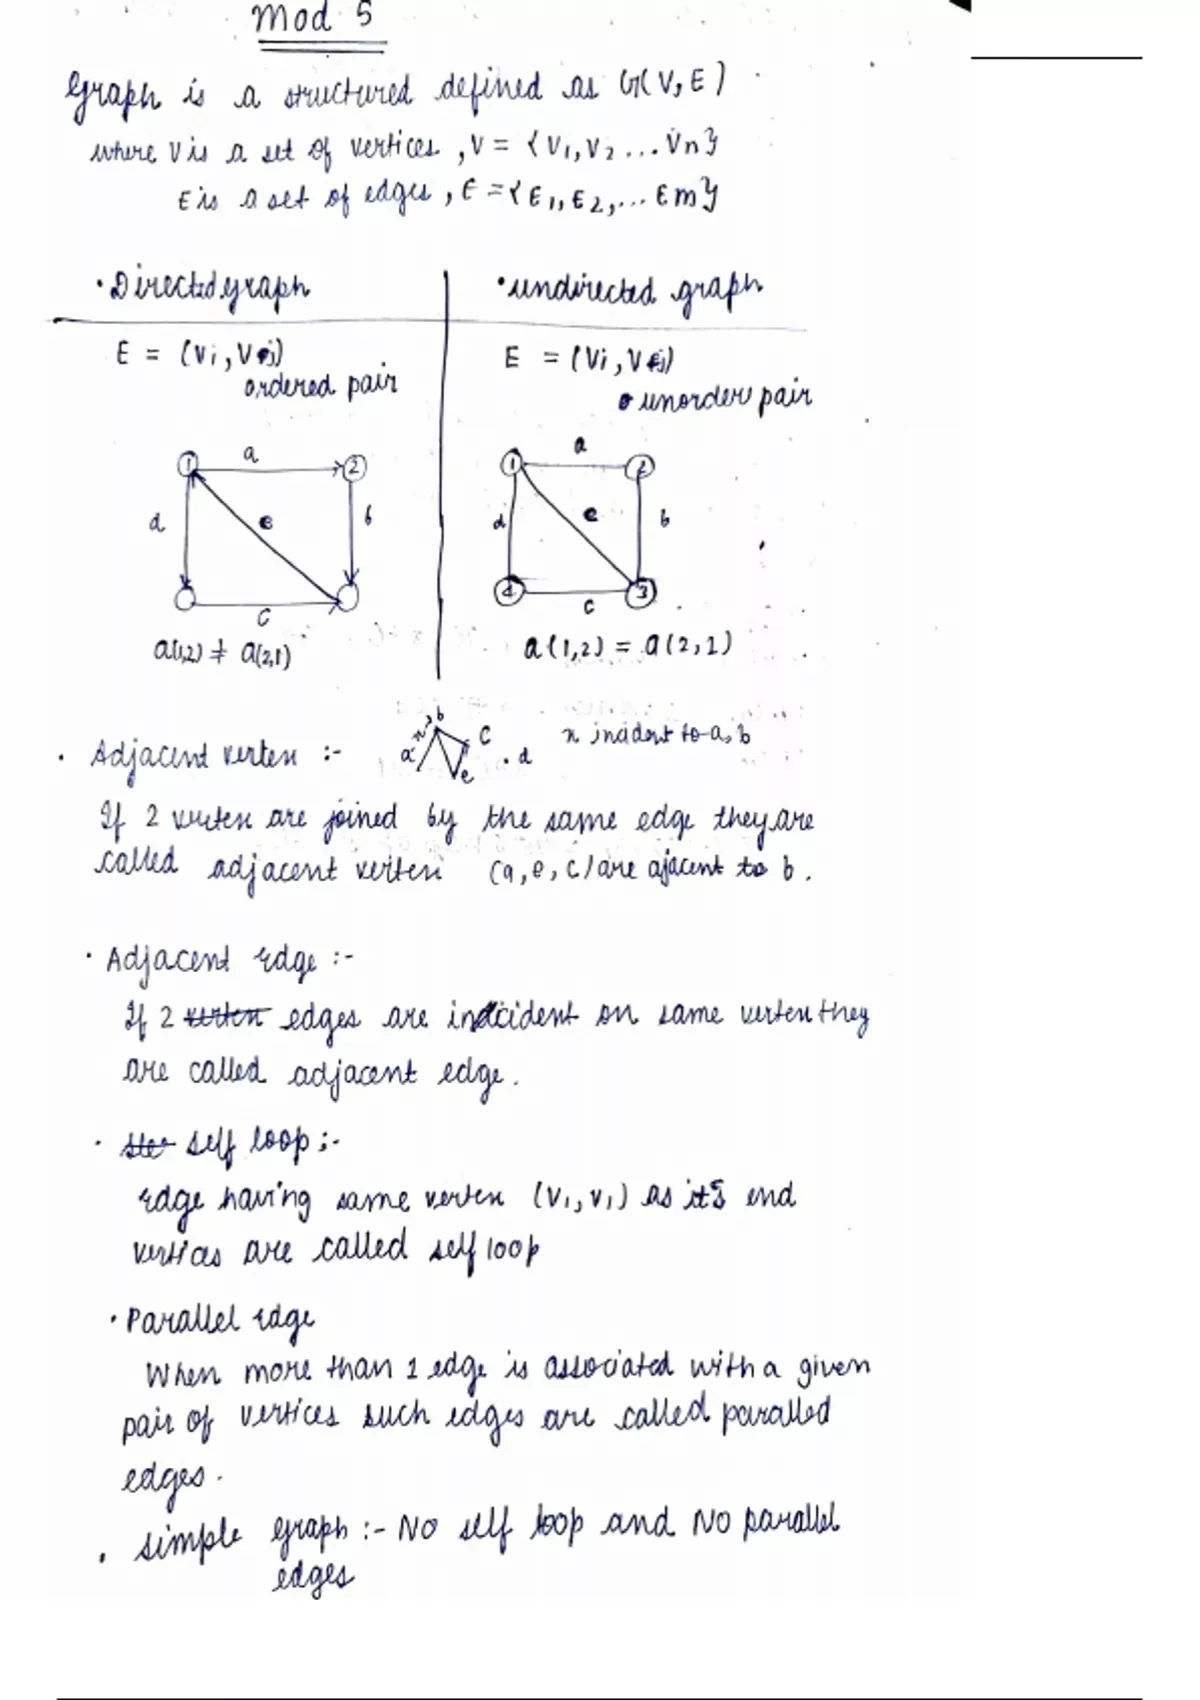 Mod 5
Graph is a structured defined as G(V,E)
where V is a set of vertices, V = {V1,V2 ... Vn}
E is a set of edges, E = {E1, E2,... Em}
• Directed graph
• undirected graph
E = (Vi, Vj)
ordered pair
E = (Vi, Vj)
unorder pair
1 a 2
d e b
c
a(1,2) ≠ a(2,1)
1 a 2
d e b
4 c 3
a(1,2) = a(2,1)
• Adjacent vertex :-
a x b c e . d
x incident to a, b
If 2 vertex are joined by the same edge they are
called adjacent vertex (a, e, c) are ajacent to b.
• Adjacent edge :-
If 2 vertex edges are incident on same vertex they
are called adjacent edge.
• self loop :-
edge having same vertex (V1, V1) as it's end
vertices are called self loop
• Parallel edge
When more than 1 edge is associated with a given
pair of vertices such edges are called paralled
edges.
• simple graph :- No self loop and No parallel
edges